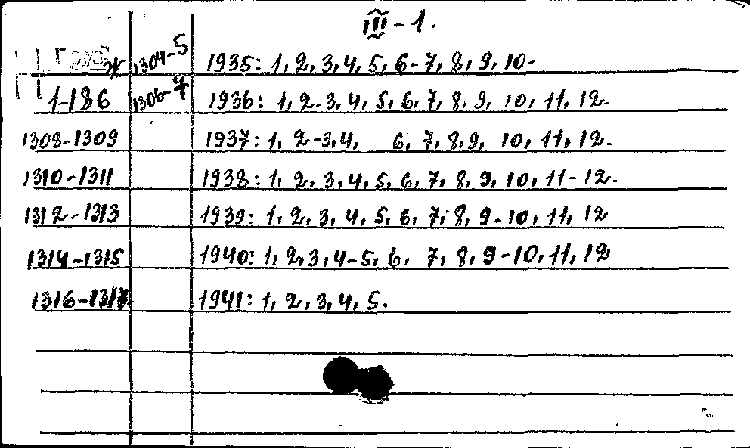 III-1.
1304-5 1935: 1, 2, 3, 4, 5, 6-7, 8, 9, 10-
1-186 1306-7 1936: 1, 2-3, 4, 5, 6, 7, 8, 9, 10, 11, 12-
1308-1309 1937: 1, 2-3, 4, 6, 7, 8, 9, 10, 11, 12-
1310-1311 1938: 1, 2, 3, 4, 5, 6, 7, 8, 9, 10, 11-12-
1312-1313 1939: 1, 2, 3, 4, 5, 6, 7, 8, 9-10, 11, 12
1314-1315 1940: 1, 2, 3, 4-5, 6, 7, 8, 9-10, 11, 12
1316-1317 1941: 1, 2, 3, 4, 5.